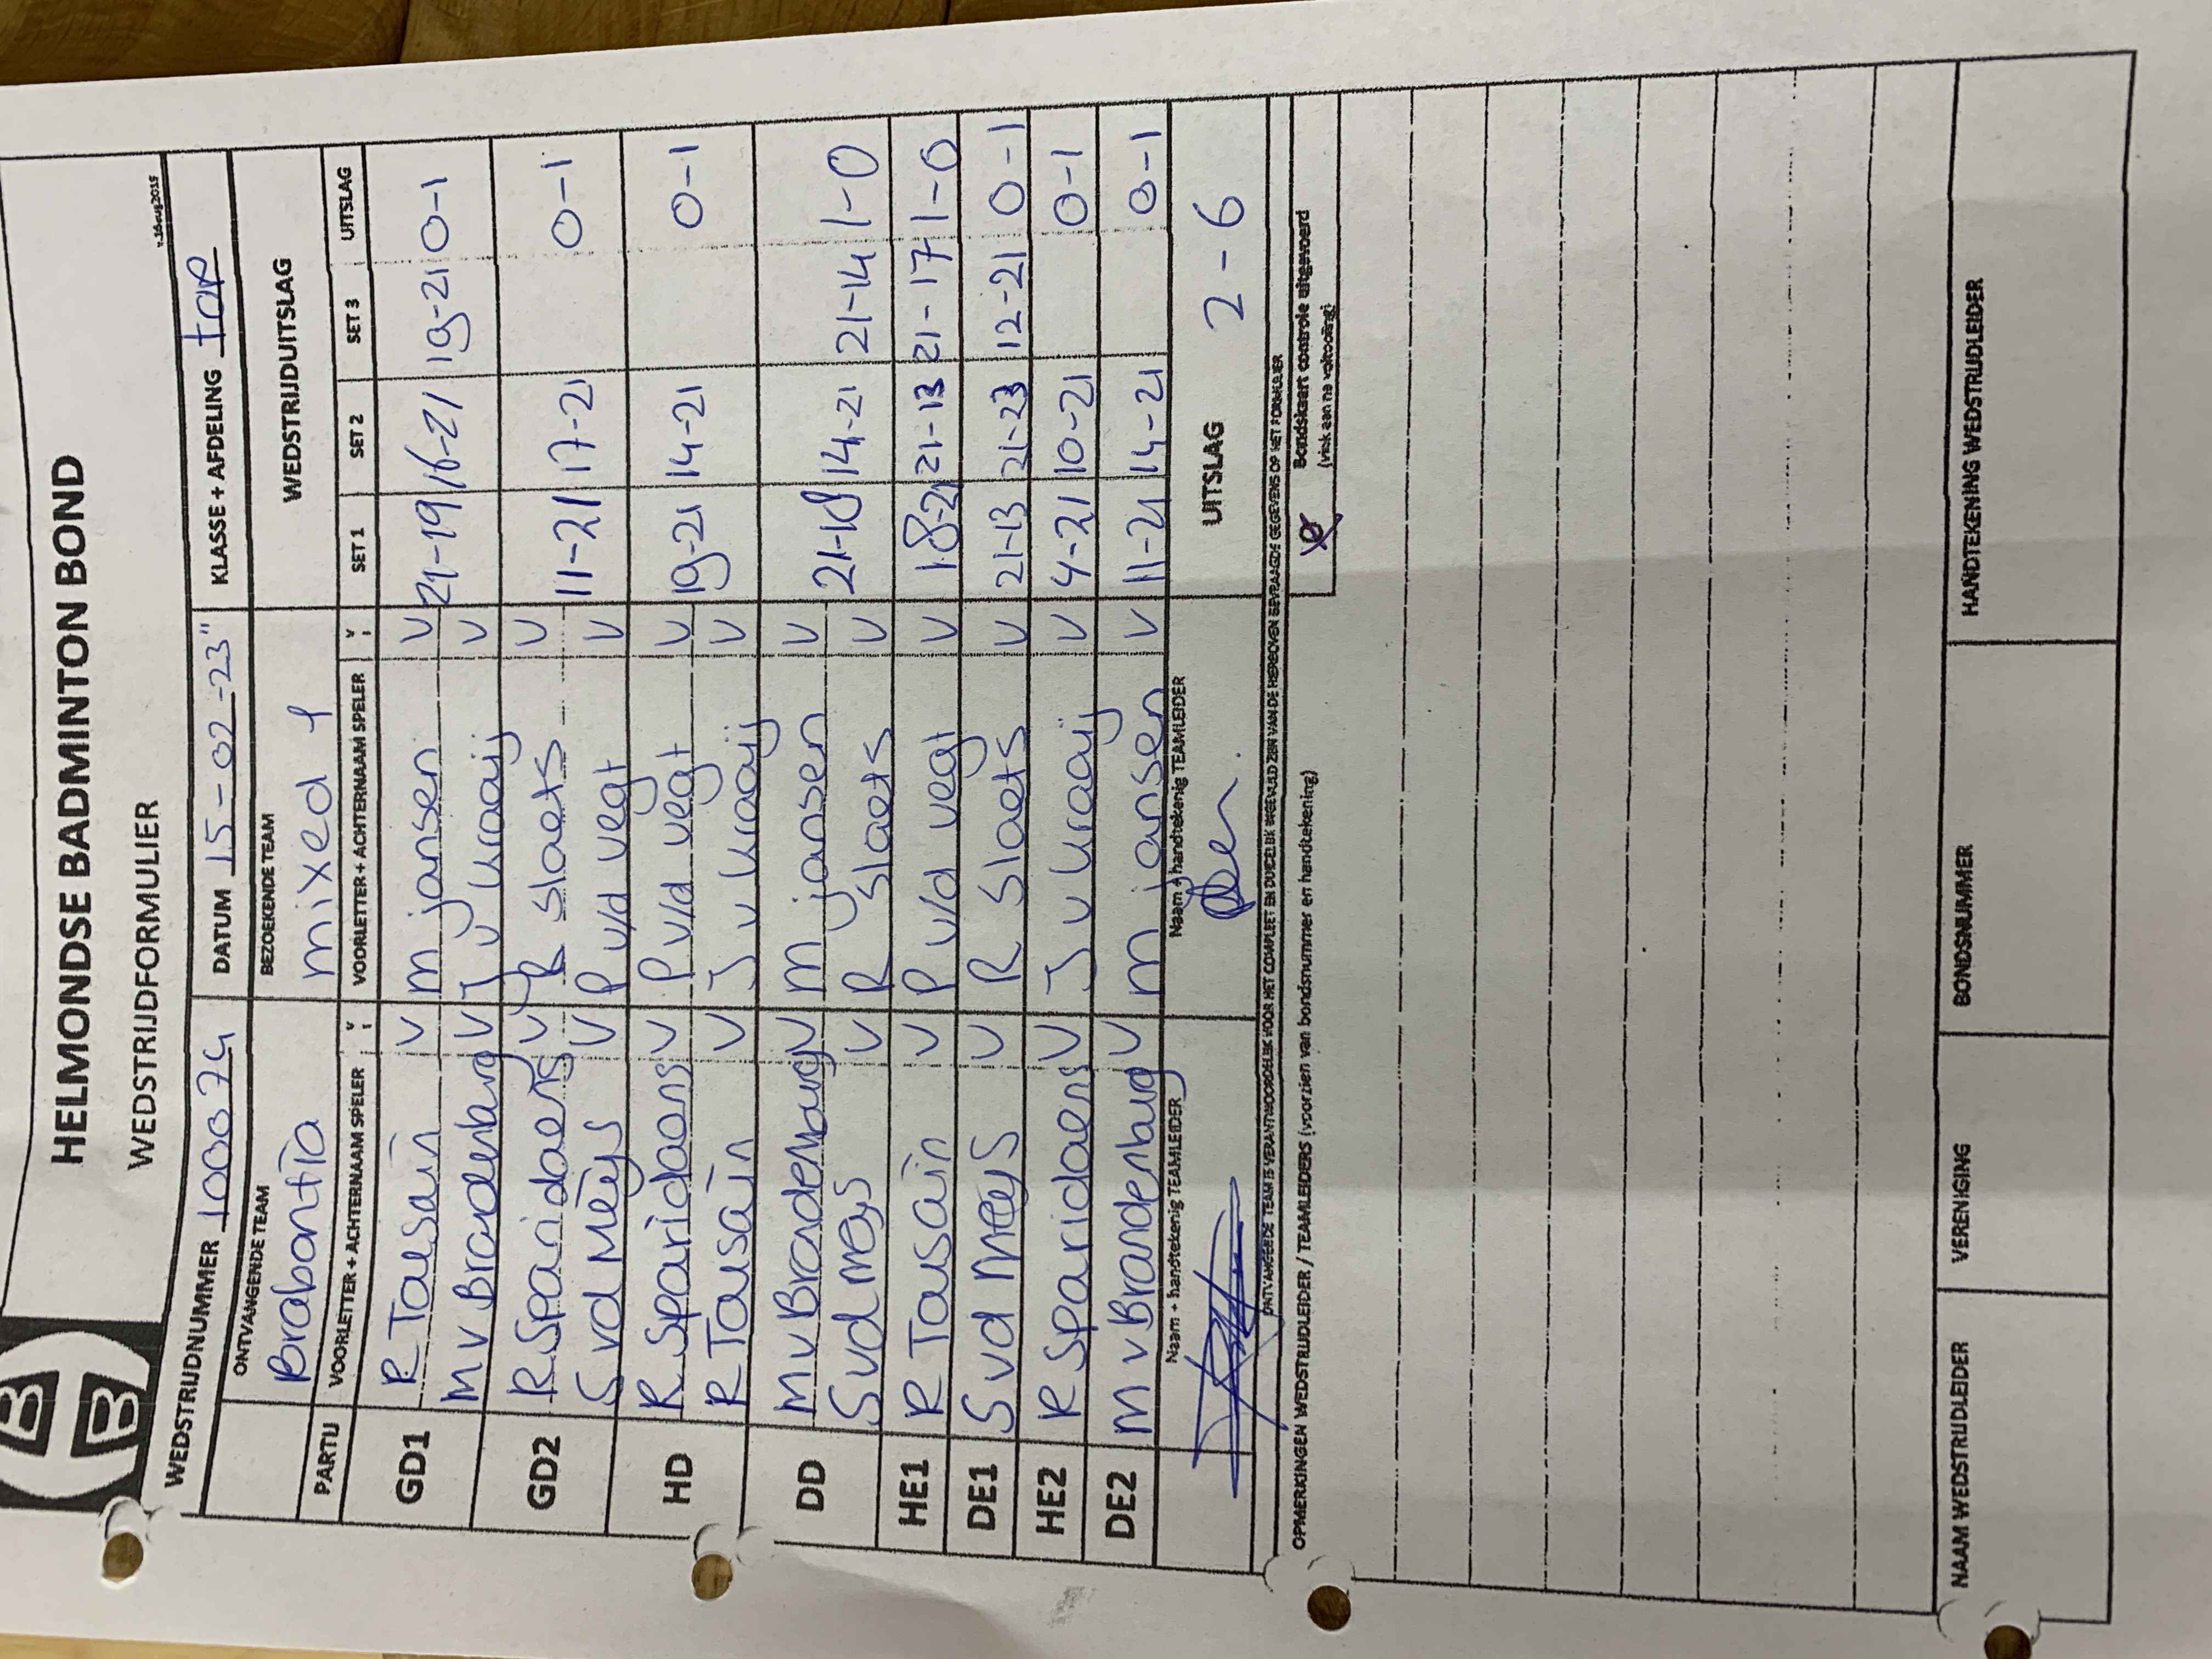 HELMONDSE BADMINTON BOND
WEDSTRIJDFORMULIER
v.16aug2015
WEDSTRIJDNUMMER 100074 DATUM 15-02-23" KLASSE + AFDELING top
ONTVANGENDE TEAM BEZOEKENDE TEAM WEDSTRIJDUITSLAG
Brabantia mixed 1
PARTIJ VOORLETTER + ACHTERNAAM SPELER V VOORLETTER + ACHTERNAAM SPELER V SET 1 SET 2 SET 3 UITSLAG
GD1 R Tausain V M jansen V 21-19 16-21 19-21 0-1
M v Brandenburg V J v Kraaij V
GD2 R Sparidaens V R Slaets V 11-21 17-21 0-1
S vd Meijs V P v/d vegt V
HD R Sparidaens V P v/d vegt V 19-21 14-21 0-1
R Tausain V J v Kraaij V
DD M v Brandenburg V M jansen V 21-18 14-21 21-14 1-0
S vd meijs V R Slaets V
HE1 R Tausain V P v/d vegt V 18-21 21-13 21-17 1-0
DE1 S vd meijs V R Slaets V 21-13 21-23 12-21 0-1
HE2 R Sparidaens V J v Kraaij V 4-21 10-21 0-1
DE2 M v Brandenburg V M jansen V 11-21 14-21 0-1
Naam + handtekenig TEAMLEIDER Naam + handtekenig TEAMLEIDER UITSLAG 2-6
ONTVANGENDE TEAM IS VERANTWOORDELIJK VOOR HET COMPLEET EN DUIDELIJK INGEVULD ZIJN VAN DE HIERBOVEN GEVRAAGDE GEGEVENS OP HET FORMULIER
OPMERKINGEN WEDSTRIJDLEIDER / TEAMLEIDERS (voorzien van bondsnummer en handtekening)
Bondskaart controle uitgevoerd
(vink aan na voltooiing)
NAAM WEDSTRIJDLEIDER VERENIGING BONDSNUMMER HANDTEKENING WEDSTRIJDLEIDER